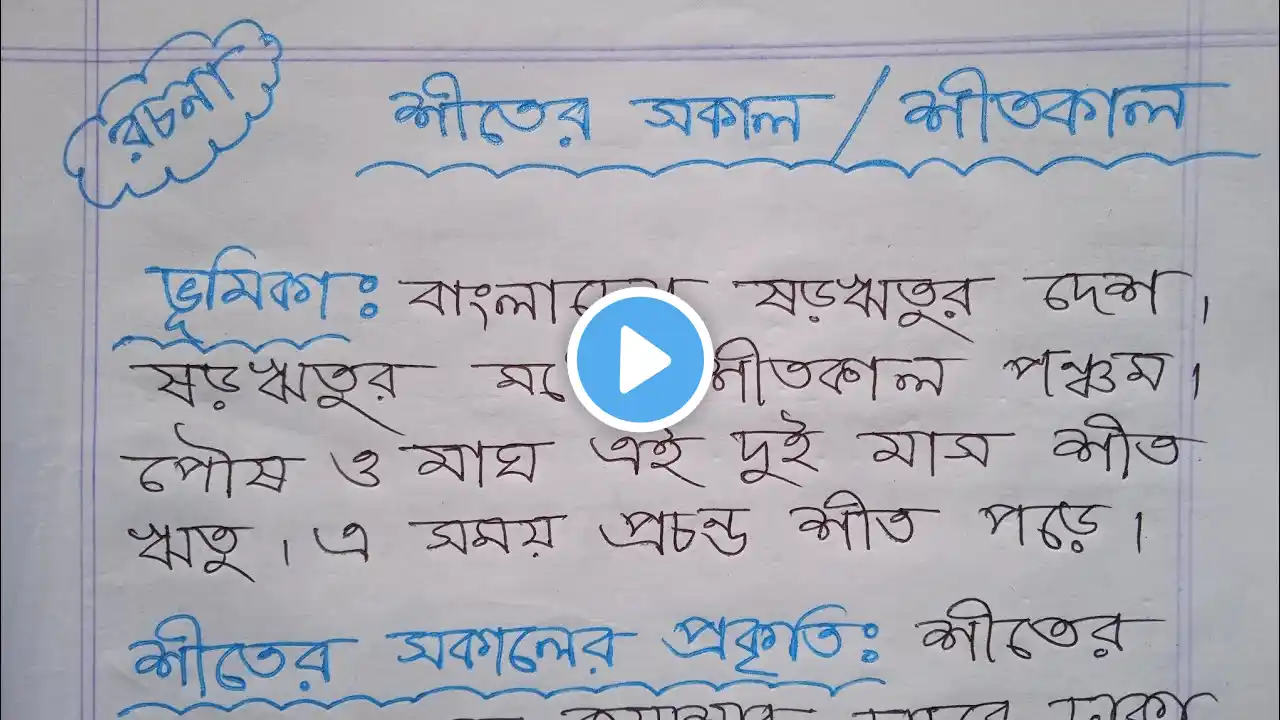 রচনা
শীতের সকাল / শীতকাল
ভূমিকাঃ ষড়ঋতুর দেশ।
ষড়ঋতুর শীতকাল পঞ্চম।
পৌষ ও মাঘ এই দুই মাস শীত
ঋতু। এ সময় প্রচন্ড শীত পড়ে।
শীতের সকালের প্রকৃতিঃ শীতের